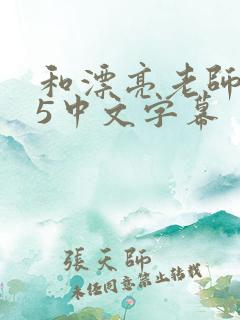 和漂亮老師
5中文字幕
張天師
未経同意禁止転載